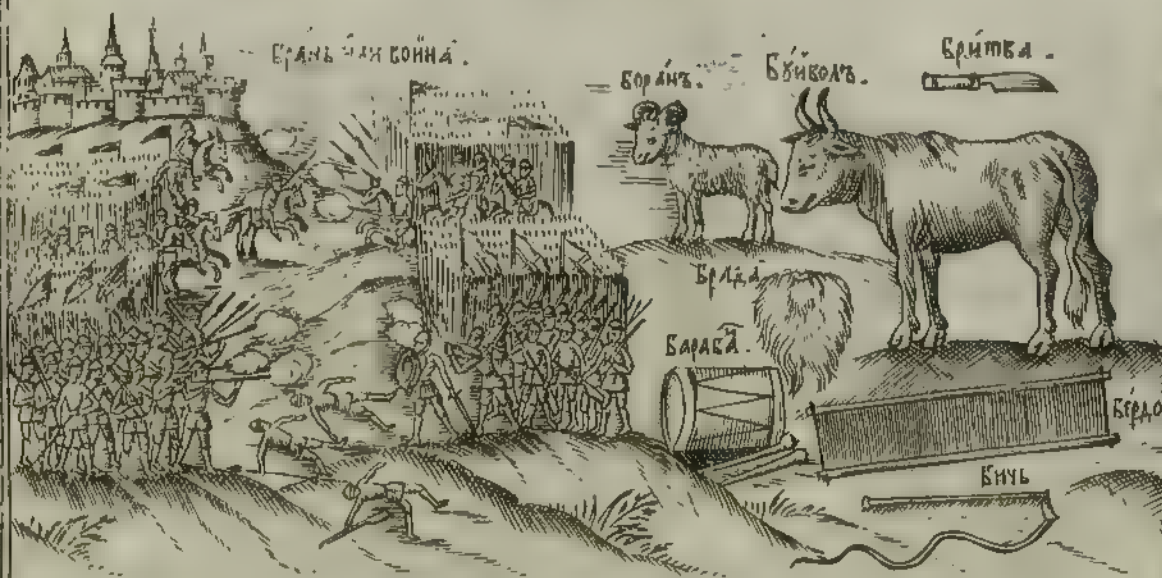 Бра́нь или война̀.
Бора́нъ.
Бу́йволъ.
Бри́тва.
Брада̀
Бараба̑
Бе́рдо
Бичь